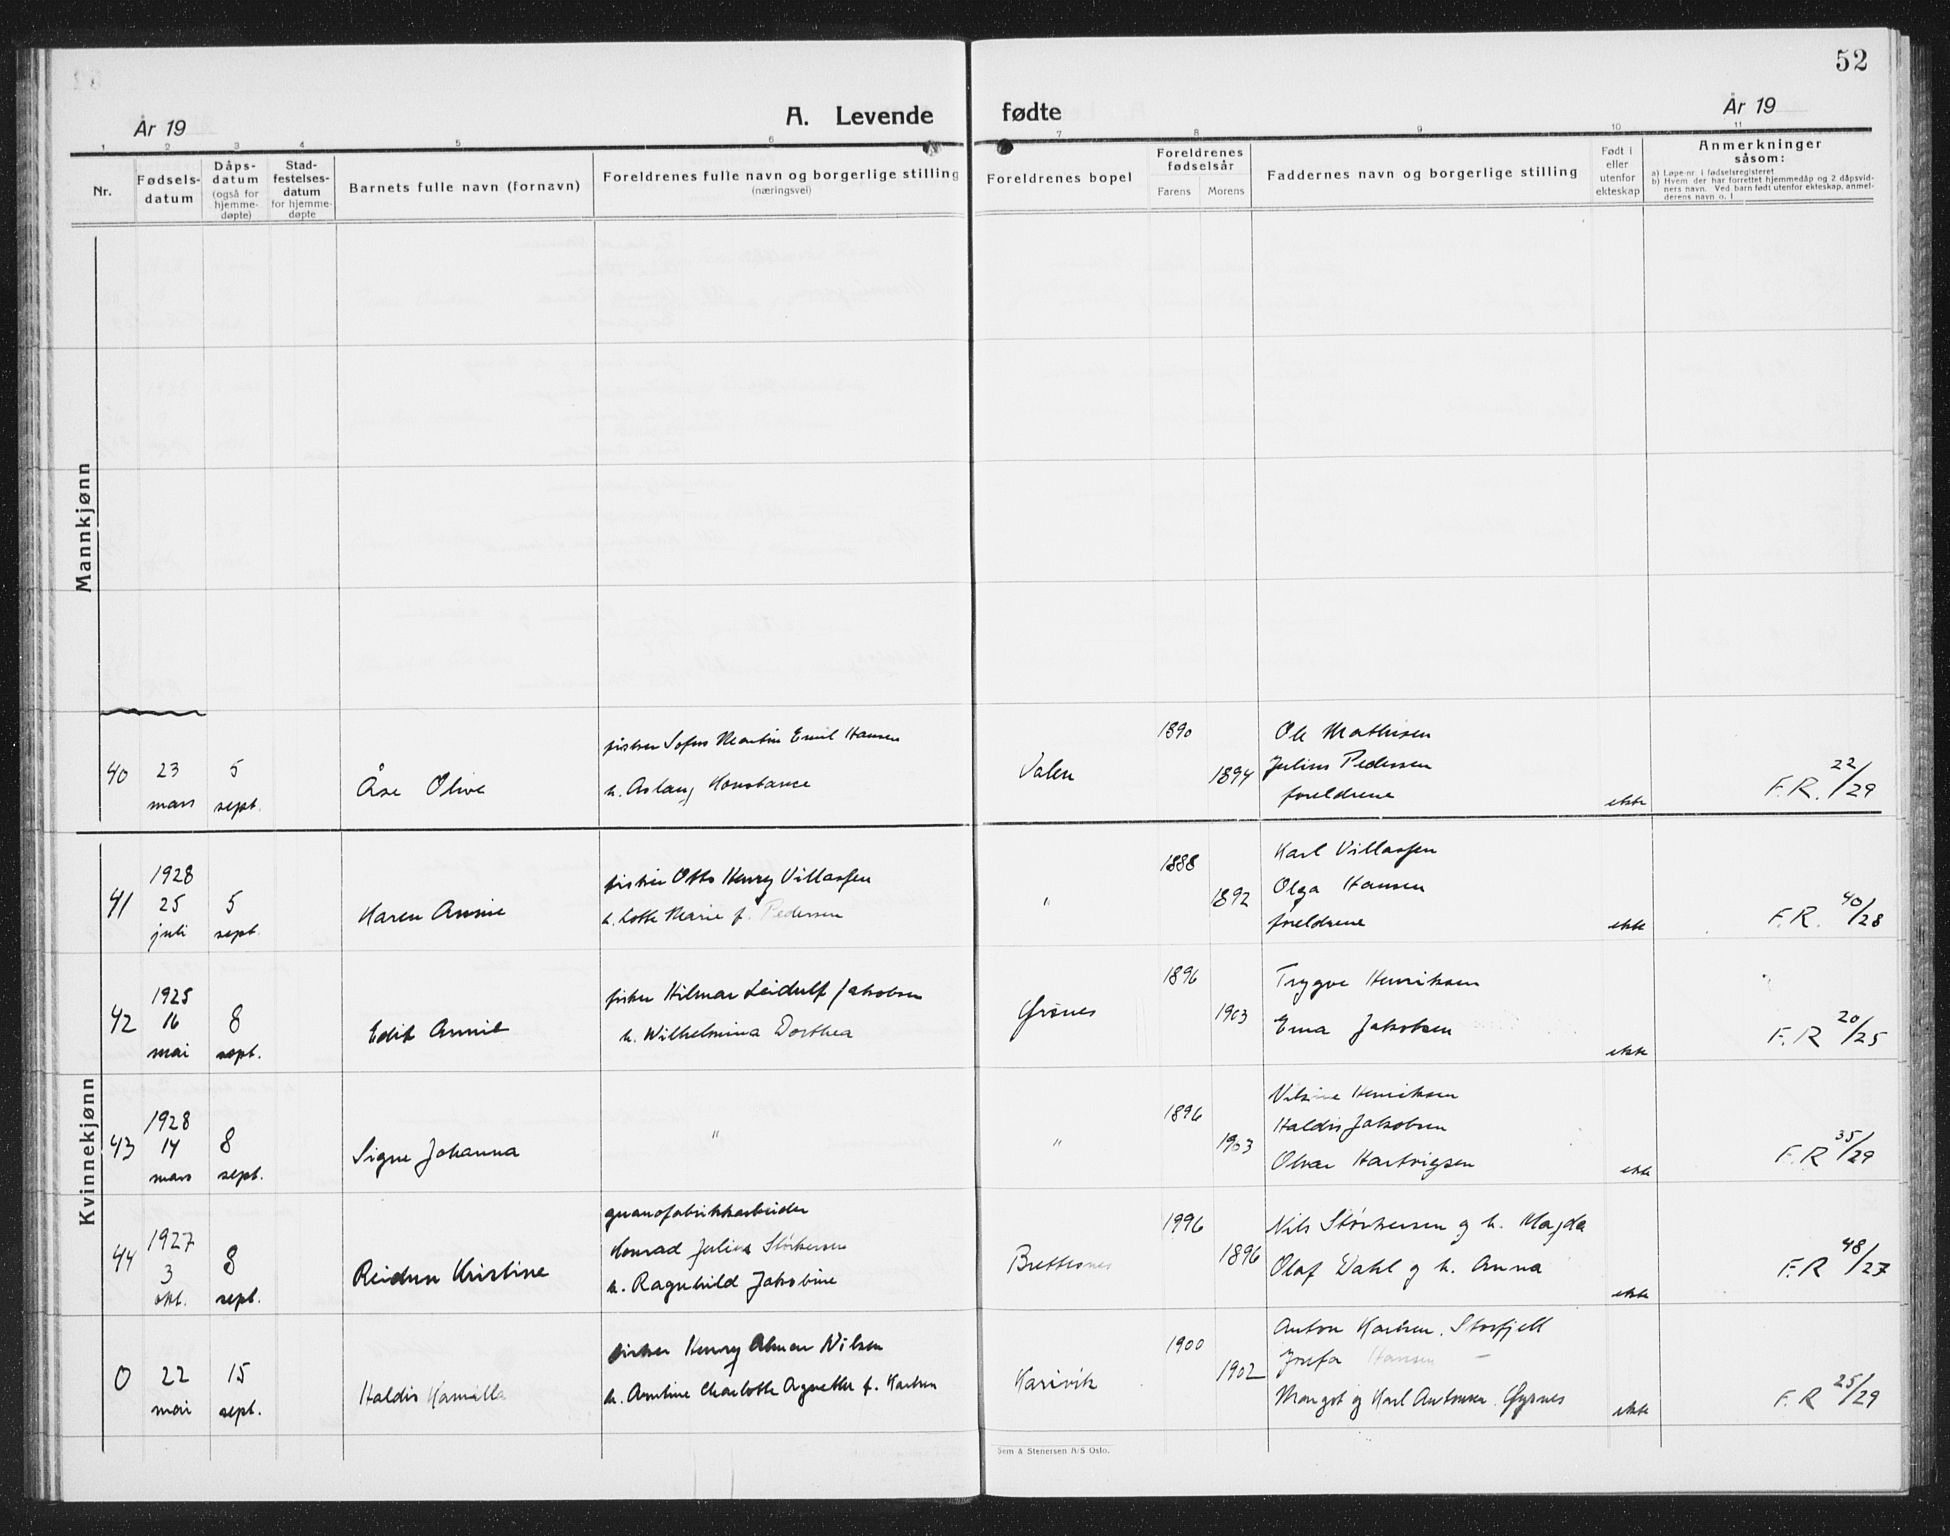 52
År 19
A. Levende fødte
År 19
1 2 3 4 5 6 7 8 9 10 11
Nr.
Fødsels-
datum
Dåps-
datum
(også for
hjemme-
døpte)
Stad-
festelses-
datum
for hjemme-
døpte
Barnets fulle navn (fornavn)
Foreldrenes fulle navn og borgerlige stilling
(næringsvei)
Foreldrenes bopel
Foreldrenes
fødselsår
Farens Morens
Faddernes navn og borgerlige stilling
Født i
eller
utenfor
ekteskap
Anmerkninger
såsom:
a) Løpe-nr. i fødselsregisteret
b) Hvem der har forrettet hjemmedåp og 2 dåpsvid-
ners navn. Ved barn født utenfor ekteskap, anmel-
derens navn o. l
Mannkjønn
40
23
mars
5
sept.
Åse Olive
fisker Sofus Martin Emil Hansen
h. Aslaug Konstance
Valen
1890
1894
Ole Mathisen
Julius Pedersen
foreldrene
ekte
F.R. 22/29
Kvinnekjønn
41
1928
25
juli
5
sept.
Karen Annie
fisker Otto Henry Villassen
h. Lotte Marie f. Pedersen
"
1888
1892
Karl Villassen
Olga Hansen
foreldrene
ekte
F.R. 40/28
42
1925
16
mai
8
sept.
Edit Annie
fisker Hilmar Leidulf Jakobsen
h. Wilhelmina Dorthea
Grønes
1896
1903
Trygve Henriksen
Erna Jakobsen
ekte
F.R 20/25
43
1928
14
mars
8
sept.
Signe Johanna
"
"
1896
1903
Henriksen
Haldis Jakobsen
Olvar Hartvigsen
ekte
F.R 35/29
44
1927
3
okt.
8
sept.
Reidun Kristine
guanofabrikkarbeider
Konrad Julius Størkersen
h. Ragnhild Jakobine
Brettesnes
1996
1896
Nils Størkersen og h. Magda
Olaf Dahl og h. Anna
ekte
F.R 48/27
0
22
mai
15
sept.
Haldis Kamilla
fisker Henry Almar Nilsen
h. Arntine Charlotte Agnethe f. Karlsen
Karivik
1900
1902
Anton Karlsen. Storfjell
Josefa Hansen —
Margot og Karl Antonsen.
ekte
F.R 25/29
Sem & Stenersen A/S Oslo.